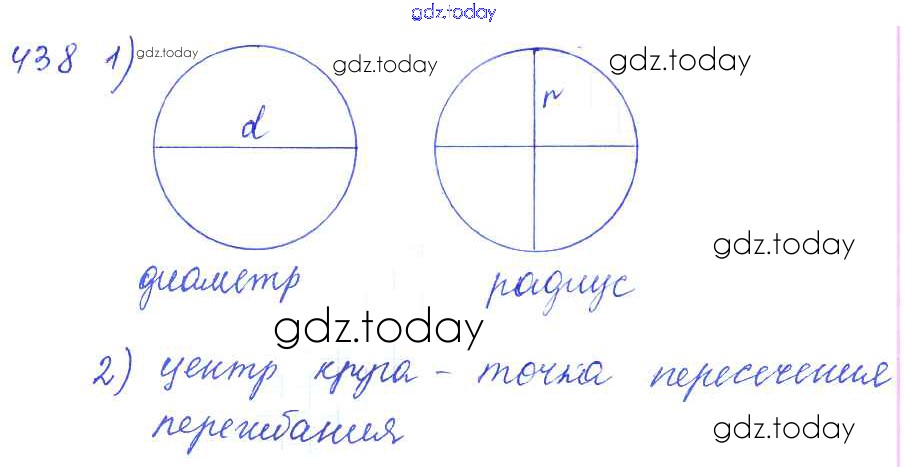 gdz.today
438 1) gdz.today gdz.today gdz.today
d r
gdz.today
диаметр радиус
gdz.today
2) центр круга – точка пересечения
перегибания gdz.today